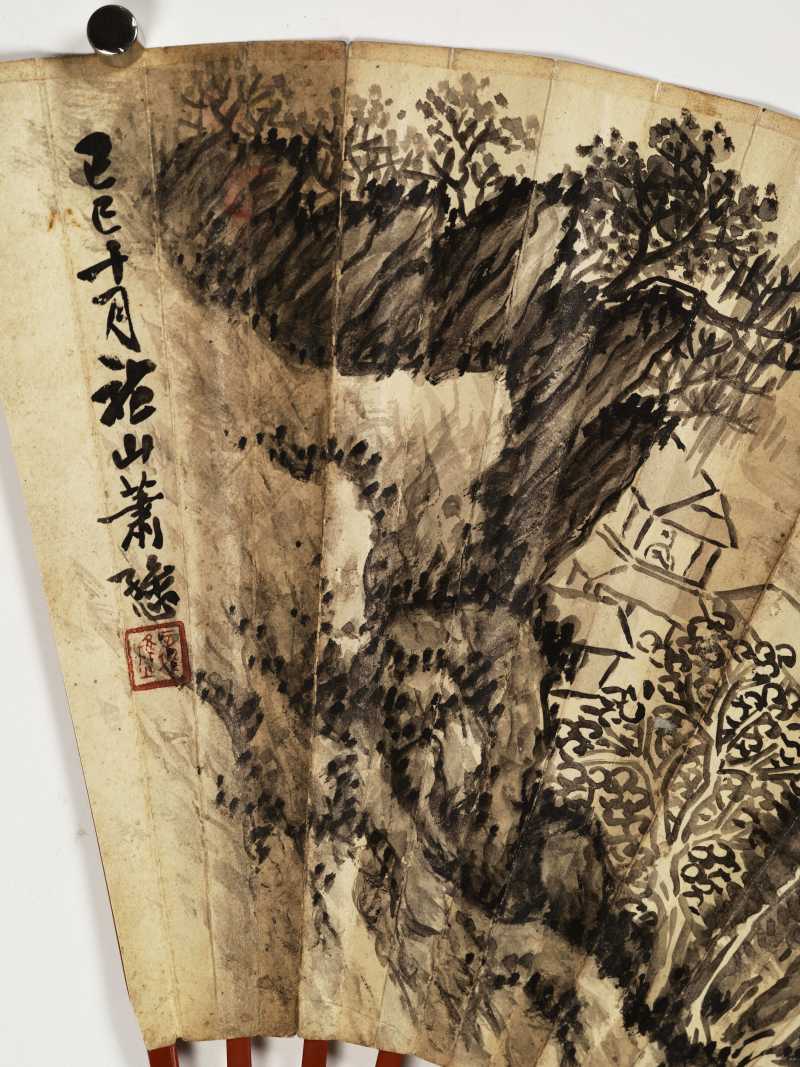 己巳十月祐山蕭愻